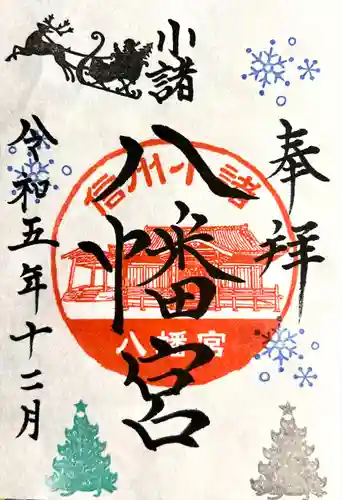 奉拝
小諸
八幡宮
信州小諸
八幡宮
令和五年十二月